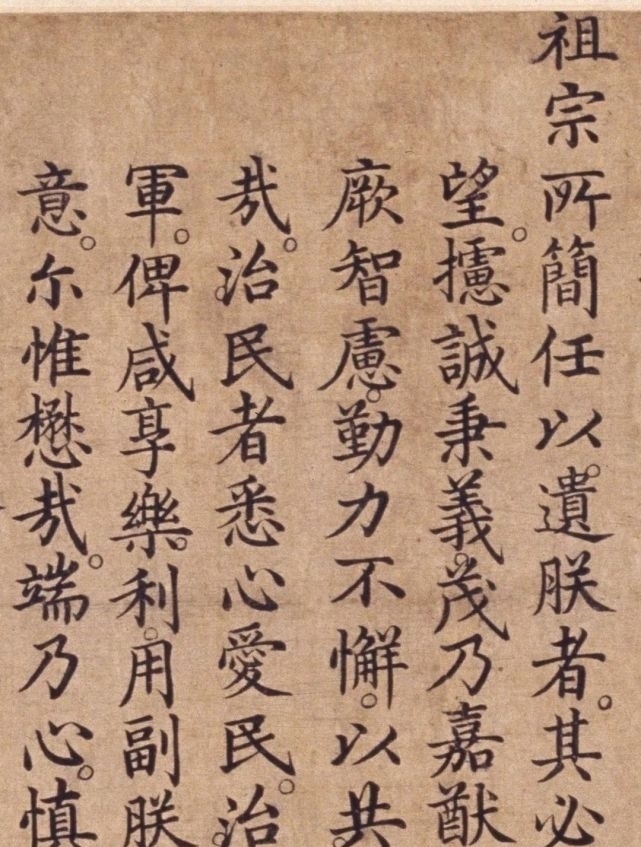 祖宗所簡任以遺朕者。其必
望。攄誠秉義。茂乃嘉猷
厥智慮。勤力不懈。以共
哉。治民者悉心愛民。治
軍。俾咸享樂。利。用副朕
意。尓惟懋哉。端乃心。慎